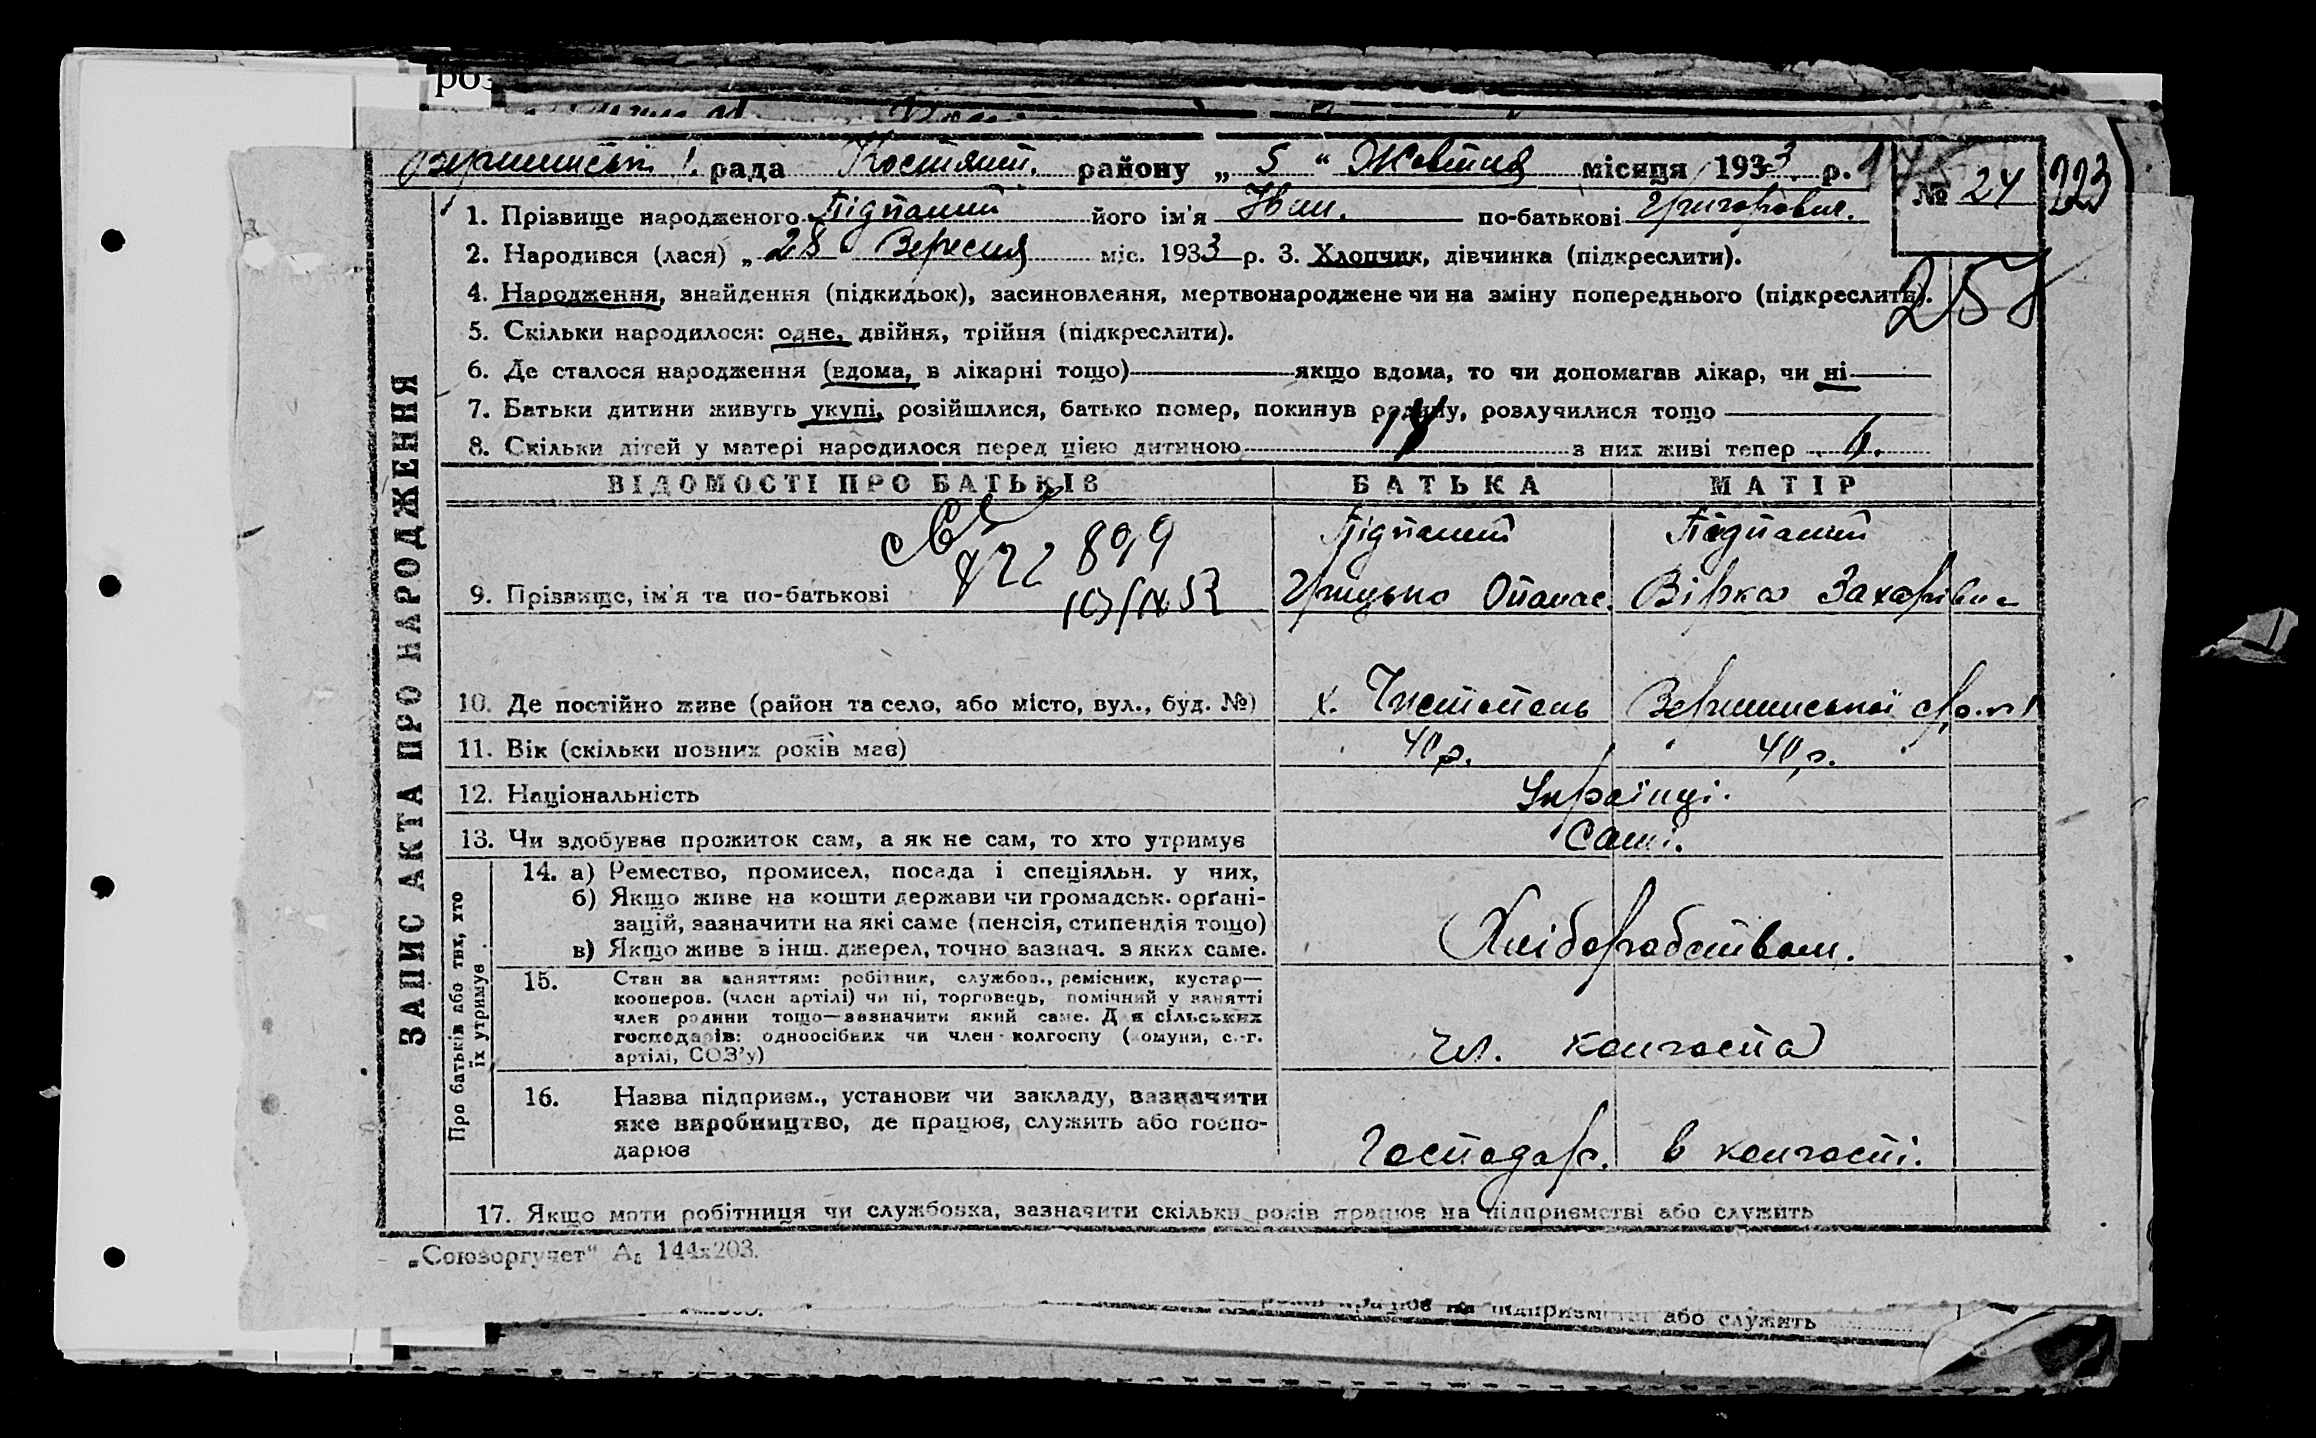 роз
Вершинськ. рада Костянт. району „ 5 “ Жовтня місяця 1933 р.
№ 24 223
1. Прізвище народженого Підпалий його ім'я Іван. по-батькові Григорович.
2. Народився (лася) „ 28 Вересня міс. 1933 р. 3. Хлопчик, дівчинка (підкреслити).
258
4. Народження, знайдення (підкидьок), засиновлення, мертвонароджене чи на зміну попереднього (підкреслити).
5. Скільки народилося: одне, двійня, трійня (підкреслити).
6. Де сталося народження (вдома, в лікарні тощо) якщо вдома, то чи допомагав лікар, чи ні
7. Батьки дитини живуть укупі, розійшлися, батько помер, покинув родину, розлучилися тощо
8. Скільки дітей у матері народилося перед цією дитиною з них живі тепер
ЗАПИС АКТА ПРО НАРОДЖЕННЯ
ВІДОМОСТІ ПРО БАТЬКІВ БАТЬКА МАТІР
Підпалий Підпалий
899
9. Прізвище, ім'я та по-батькові Грицько Опанас. Вірка Захарівна
10. Де постійно живе (район та село, або місто, вул., буд. №) х. Вершинської
11. Вік (скільки повних років має) 40 р. 40 р.
12. Національність Українці.
13. Чи здобуває прожиток сам, а як не сам, то хто утримує Самі.
Про батьків або тих, хто їх утримує
14. а) Ремество, промисел, посада і спеціяльн. у них,
б) Якщо живе на кошти держави чи громадськ. орґані-
зацій, зазначити на які саме (пенсія, стипендія тощо)
в) Якщо живе з інш. джерел, точно зазнач. з яких саме.
Хліборобством.
15. Стан за заняттям: робітник, службов., ремісник, кустар—
кооперов. (член артілі) чи ні, торговець, помічний у занятті
член родини тощо—зазначити який саме. Для сільських
господарів: одноосібник чи член колгоспу (комуни, с.-г.
артілі, СОЗ'у)
чл. колгоспа
16. Назва підприєм., установи чи закладу, зазначити
яке виробництво, де працює, служить або госпо-
дарює
Господар. в колгоспі.
17. Якщо мати робітниця чи службовка, зазначити скільки років працює на підприємстві або служить
„Союзоргучет“ А₅ 144х203.
або служить